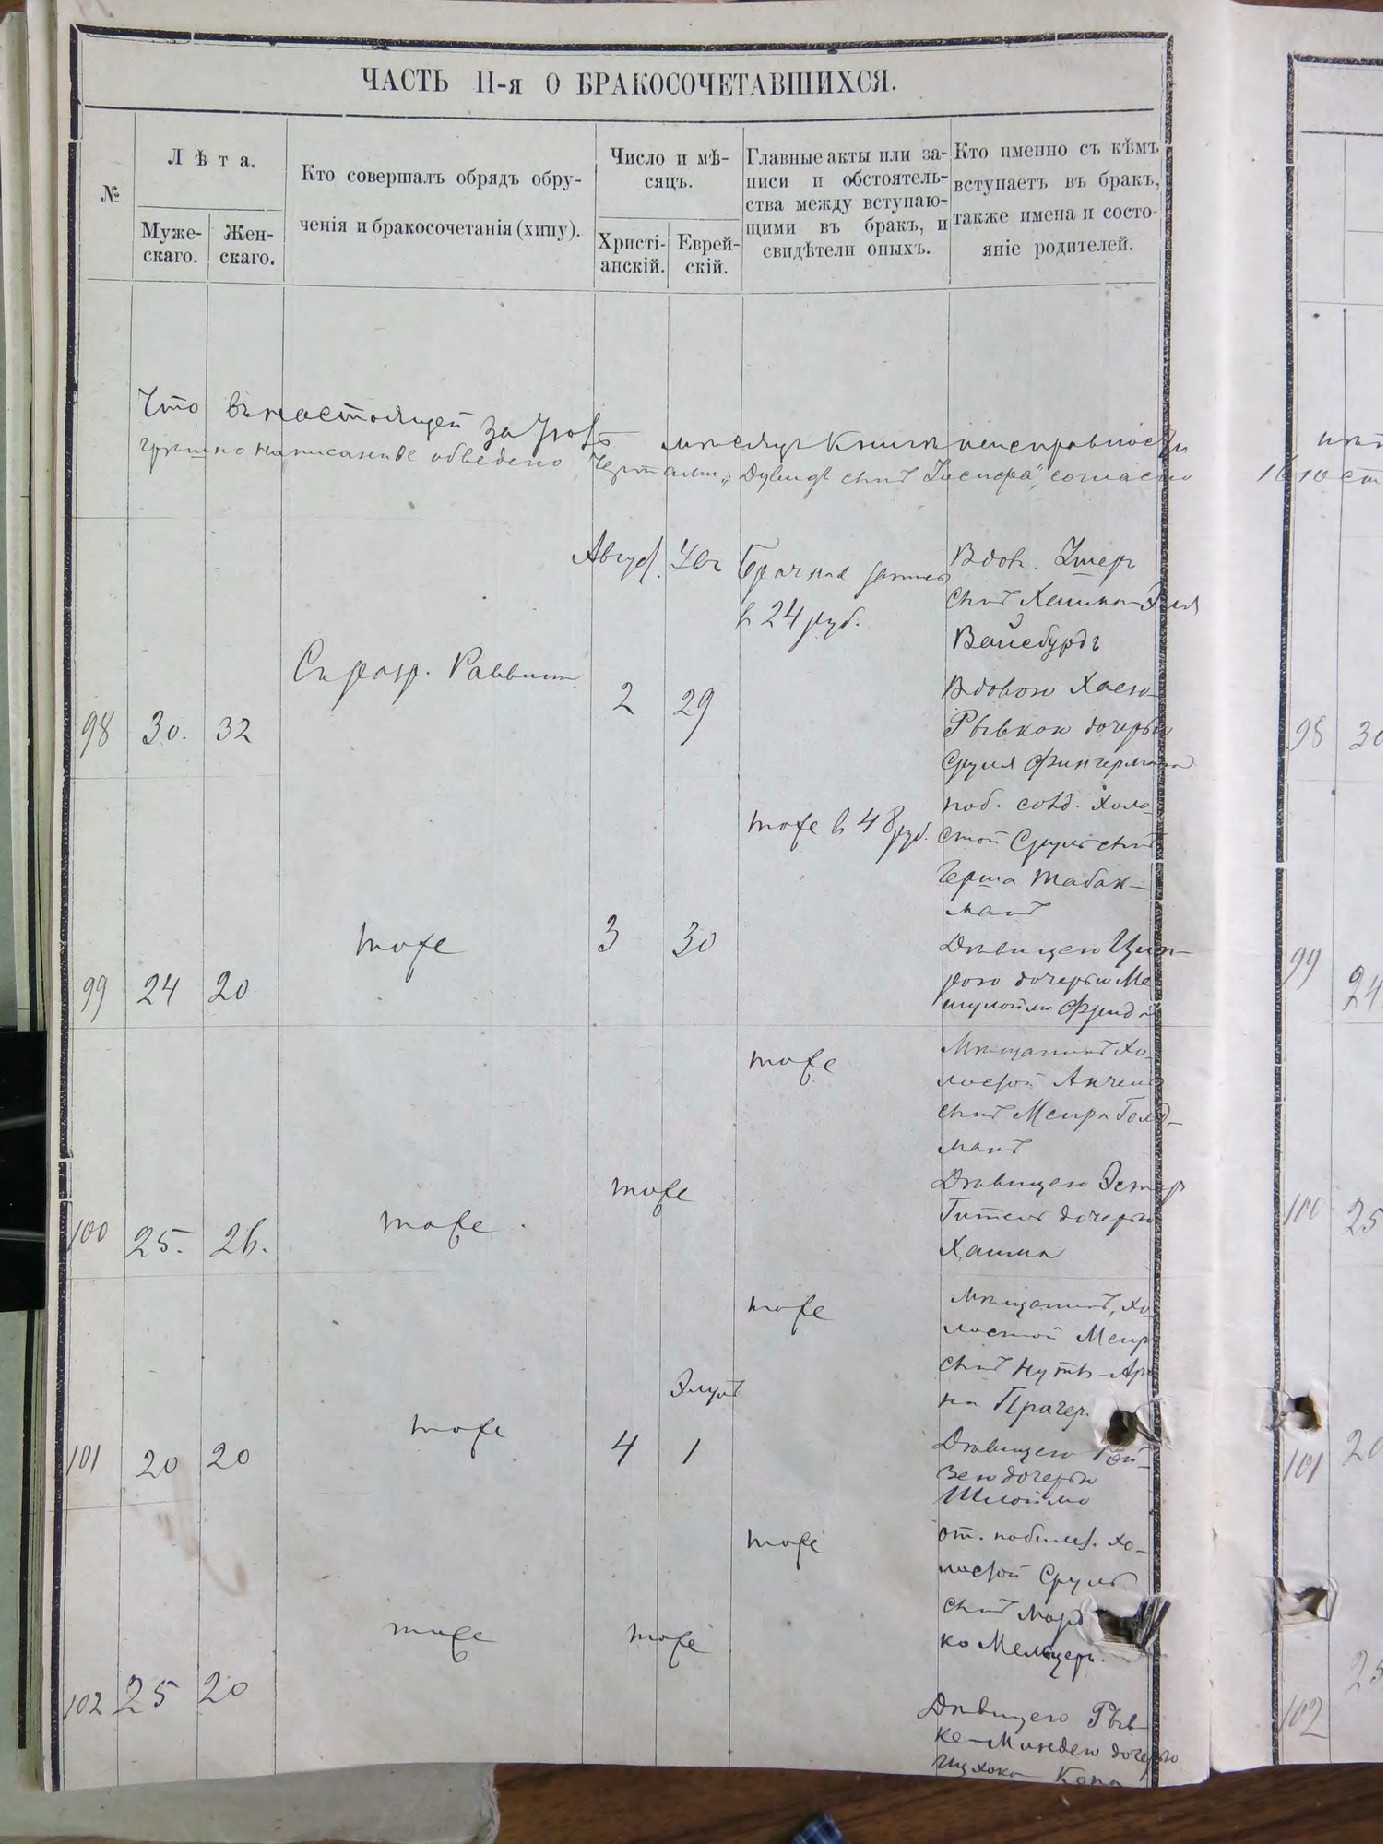 ЧАСТЬ II-я О БРАКОСОЧЕТАВШИХСЯ.
№
Лѣта.
Муже-
скаго.
Жен-
скаго.
Кто совершалъ обрядъ обру-
ченія и бракосочетанія (хипу).
Число и мѣ-
сяцъ.
Христі-
анскій.
Еврей-
скій.
Главные акты или за-
писи и обстоятель-
ства между вступаю-
щими въ бракъ, и
свидѣтели оныхъ.
Кто именно съ кѣмъ
вступаетъ въ бракъ,
также имена и состо-
яніе родителей.
Что въ настоящей за
мѣсяцъ книги неисправности
написаніе обведено чертами „ сынъ Іосифа", согласно
1610 ст
98 30. 32
Съ разр. Раввин
Август. Ав
2 29
Брачная запись
в 24 руб.
Вдов. Умер
сынъ Хаима-Эля
Вайсбурдъ
Вдовою Хаею
Рывкою дочерью
Сруля Фингермана
99 24 20
тоже
3 30
тоже в 48 руб.
поб. совѣ. Холо-
стой Сруль сынъ
Герша Табак-
манъ
Дѣвицею Цип-
рою дочерью Ме
Фрид
100 25. 26.
тоже.
тоже
тоже
Мѣщанинъ хо-
лостой Анчель
сынъ Меира Голд-
манъ
Дѣвицею Эстер
Гитель дочерью
Хаима
101 20 20
тоже
4
Элулъ
1
тоже
Мѣщанинъ, хо
лостой Меир
сынъ Нутъ-Аро
на Прагер.
Дѣвицею Рой-
зею дочерью
Шлоймо
102 25 20
тоже
тоже
тоже
от. побилет. хо-
лостой Сруль
сынъМорд
ко Мельцеръ.
Дѣвицею Рыв
ке-Миндею дочерью
98 30
99 24
100 25
101 20
102 25